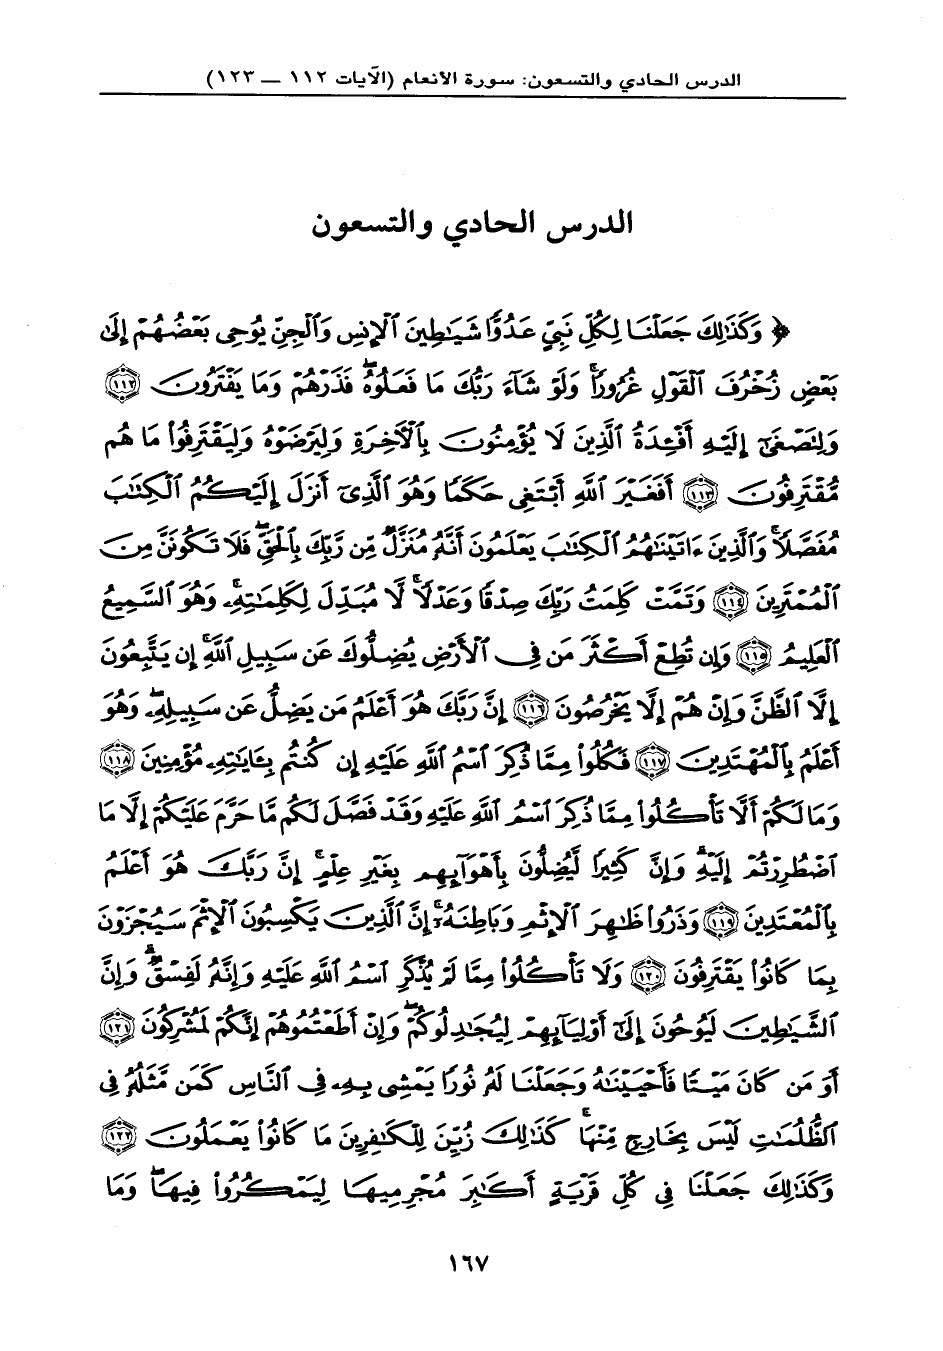 الدرس الحادي والتسعون: سورة الأنعام (الآيات ١١٢ ــ ١٢٣)
الدرس الحادي والتسعون
﴿ وَكَذَٰلِكَ جَعَلْنَا لِكُلِّ نَبِيٍّ عَدُوًّا شَيَـٰطِينَ ٱلْإِنسِ وَٱلْجِنِّ يُوحِى بَعْضُهُمْ إِلَىٰ
بَعْضٍ زُخْرُفَ ٱلْقَوْلِ غُرُورًا ۚ وَلَوْ شَآءَ رَبُّكَ مَا فَعَلُوهُ ۖ فَذَرْهُمْ وَمَا يَفْتَرُونَ ﴿١١٢﴾
وَلِتَصْغَىٰٓ إِلَيْهِ أَفْـِٔدَةُ ٱلَّذِينَ لَا يُؤْمِنُونَ بِٱلْـَٔاخِرَةِ وَلِيَرْضَوْهُ وَلِيَقْتَرِفُوا۟ مَا هُم
مُّقْتَرِفُونَ ﴿١١٣﴾ أَفَغَيْرَ ٱللَّهِ أَبْتَغِى حَكَمًا وَهُوَ ٱلَّذِىٓ أَنزَلَ إِلَيْكُمُ ٱلْكِتَـٰبَ
مُفَصَّلًا ۚ وَٱلَّذِينَ ءَاتَيْنَـٰهُمُ ٱلْكِتَـٰبَ يَعْلَمُونَ أَنَّهُۥ مُنَزَّلٌ مِّن رَّبِّكَ بِٱلْحَقِّ ۖ فَلَا تَكُونَنَّ مِنَ
ٱلْمُمْتَرِينَ ﴿١١٤﴾ وَتَمَّتْ كَلِمَتُ رَبِّكَ صِدْقًا وَعَدْلًا ۚ لَّا مُبَدِّلَ لِكَلِمَـٰتِهِۦ ۚ وَهُوَ ٱلسَّمِيعُ
ٱلْعَلِيمُ ﴿١١٥﴾ وَإِن تُطِعْ أَكْثَرَ مَن فِى ٱلْأَرْضِ يُضِلُّوكَ عَن سَبِيلِ ٱللَّهِ ۚ إِن يَتَّبِعُونَ
إِلَّا ٱلظَّنَّ وَإِنْ هُمْ إِلَّا يَخْرُصُونَ ﴿١١٦﴾ إِنَّ رَبَّكَ هُوَ أَعْلَمُ مَن يَضِلُّ عَن سَبِيلِهِۦ ۖ وَهُوَ
أَعْلَمُ بِٱلْمُهْتَدِينَ ﴿١١٧﴾ فَكُلُوا۟ مِمَّا ذُكِرَ ٱسْمُ ٱللَّهِ عَلَيْهِ إِن كُنتُم بِـَٔايَـٰتِهِۦ مُؤْمِنِينَ ﴿١١٨﴾
وَمَا لَكُمْ أَلَّا تَأْكُلُوا۟ مِمَّا ذُكِرَ ٱسْمُ ٱللَّهِ عَلَيْهِ وَقَدْ فَصَّلَ لَكُم مَّا حَرَّمَ عَلَيْكُمْ إِلَّا مَا
ٱضْطُرِرْتُمْ إِلَيْهِ ۗ وَإِنَّ كَثِيرًا لَّيُضِلُّونَ بِأَهْوَآئِهِم بِغَيْرِ عِلْمٍ ۗ إِنَّ رَبَّكَ هُوَ أَعْلَمُ
بِٱلْمُعْتَدِينَ ﴿١١٩﴾ وَذَرُوا۟ ظَـٰهِرَ ٱلْإِثْمِ وَبَاطِنَهُۥٓ ۚ إِنَّ ٱلَّذِينَ يَكْسِبُونَ ٱلْإِثْمَ سَيُجْزَوْنَ
بِمَا كَانُوا۟ يَقْتَرِفُونَ ﴿١٢٠﴾ وَلَا تَأْكُلُوا۟ مِمَّا لَمْ يُذْكَرِ ٱسْمُ ٱللَّهِ عَلَيْهِ وَإِنَّهُۥ لَفِسْقٌ ۗ وَإِنَّ
ٱلشَّيَـٰطِينَ لَيُوحُونَ إِلَىٰٓ أَوْلِيَآئِهِمْ لِيُجَـٰدِلُوكُمْ ۖ وَإِنْ أَطَعْتُمُوهُمْ إِنَّكُمْ لَمُشْرِكُونَ ﴿١٢١﴾
أَوَ مَن كَانَ مَيْتًا فَأَحْيَيْنَـٰهُ وَجَعَلْنَا لَهُۥ نُورًا يَمْشِى بِهِۦ فِى ٱلنَّاسِ كَمَن مَّثَلُهُۥ فِى
ٱلظُّلُمَـٰتِ لَيْسَ بِخَارِجٍ مِّنْهَا ۚ كَذَٰلِكَ زُيِّنَ لِلْكَـٰفِرِينَ مَا كَانُوا۟ يَعْمَلُونَ ﴿١٢٢﴾
وَكَذَٰلِكَ جَعَلْنَا فِى كُلِّ قَرْيَةٍ أَكَـٰبِرَ مُجْرِمِيهَا لِيَمْكُرُوا۟ فِيهَا ۖ وَمَا
١٦٧